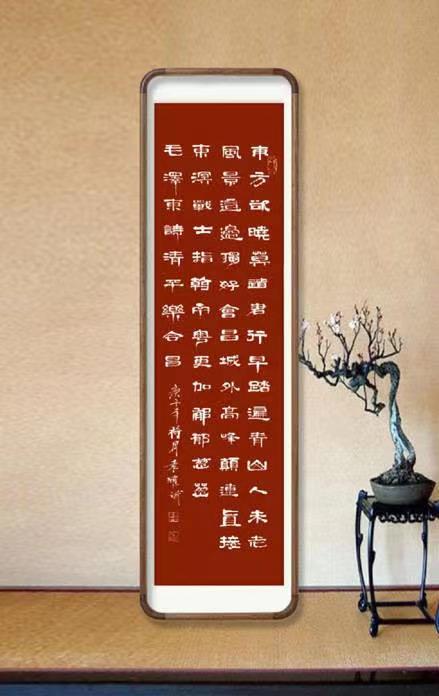 東方欲曉莫道君行早踏遍青山人未老
風景這邊獨好會昌城外高峰顛連直接
東溟戰士指看南粵更加郁郁葱葱
毛澤東詩清平樂会昌
庚子年荷月